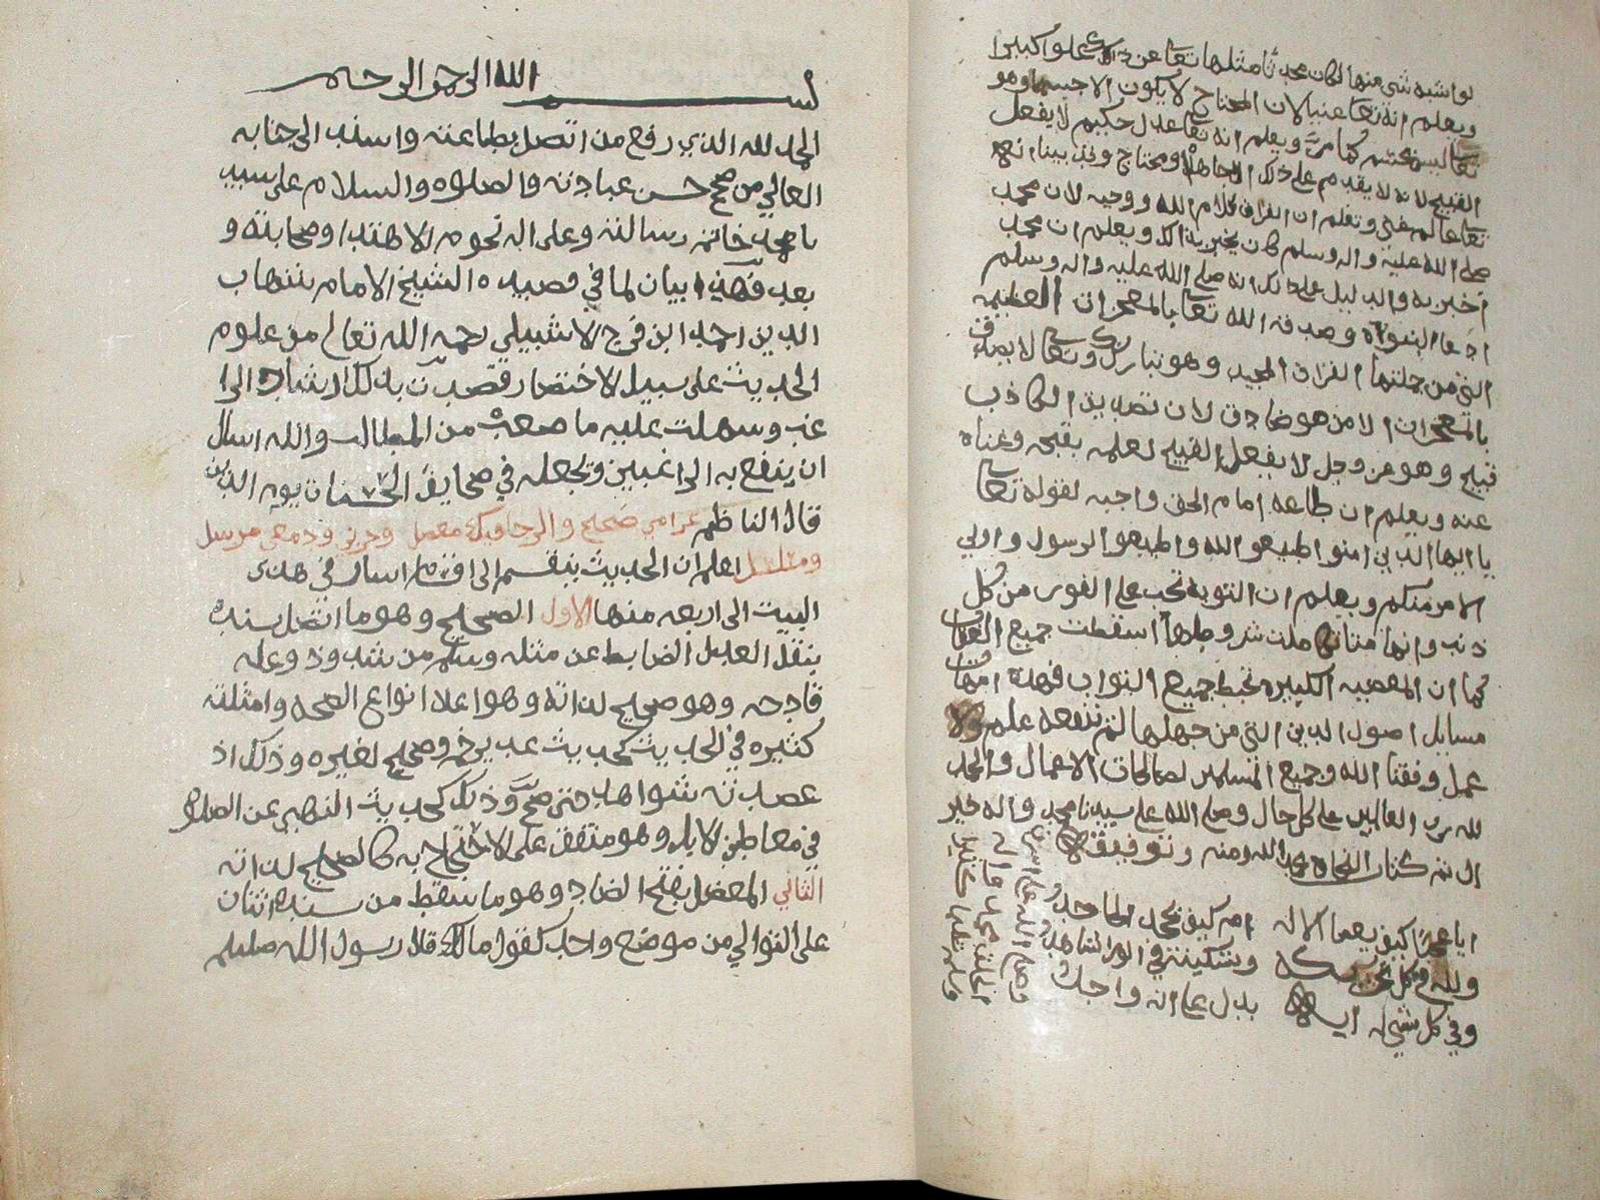 لو اشبه شى منها لكان محدثا مثلها تعا عن ذلك علوا كبيرا
ويعلم انه تعا غنيا لان المحتاج لا يكون الا جسما وهو
تعا ليس بجسم كما مر ويعلم انه تعا عدل حكيم لا يفعل
القبيح لانه لا يقدم على ذلك الا جاهلا ومحتاج وقد بينا انه
تعا عالم غنى وتعلم ان القران كلام الله ووحيه لان محمد
صلى الله عليه واله وسلم كان يخبر بذلك ويعلم ان محمد
اخبر به والدليل على ذلك انه صلى الله عليه واله وسلم
ادعا النبواه وصدقه الله تعا بالمعجزات العظيمه
التي من جملتها القران المجيد وهو تبارك وتعا لا يصدق
بالمعجزات الا من هو صادق لان تصديق الكاذب
قبيح وهو عز وجل لا يفعل القبيح لعلمه بقبحه وغناه
عنه ويعلم ان طاعه امام الحق واجبه لقوله تعا
يا ايها الذين امنوا اطيعو الله واطيعو الرسول واولي
الامر منكم ويعلم ان التوبه تجب على الفور من كل
ذنب وانها متا كملت شروطها اسقطت جميع العقاب
كما ان المعصيه الكبيره تحبط جميع الثواب فهذه امهات
مسايل اصول الدين التي من جهلها لم ينفعه علم ولا
عمل وفقنا الله وجميع المسلمين لصالحات الاعمال والحمد
لله رب العالمين على كل حال وصلى الله على سيدنا محمد واله خير
ال تم كتاب النجاه بحمد الله ومنه وتوفيقه
ايا عجبا كيف يعصا الاله ام كيف يجحد الجاحد
ولله في كل تحريكه وتسكينة في الورا شاهد
وفي كل شي له ايه يدل على انه واحد
بسم الله الرحمن الرحيم
الحمد لله الذي رفع من اتصل بطاعته واسند الى جنابه
العالي من صح حسن عبادته والصلوه والسلام على سيد
نا محمد خاتم رسالته وعلى اله نجوم الاهتدا وصحابته و
بعد فهذا بيان لما في قصيده الشيخ الامام شهاب
الدين احمد ابن فرج الاشبيلي رحمه الله تعالى من علوم
الحديث على سبيل الاختصار قصدت بذلك ارشاد الرا
غب وسهلت عليه ما صعب من المطالب والله اسال
ان ينفع به الراغبين ويجعله في صحايف الحسنات يوم الدين
قال الناظم غرامي صحيح والرجا فيك معضل وحزني ودمعي مرسل
ومسلسل اعلم ان الحديث ينقسم الى اقسام اشار في هذى
البيت الى اربعه منها الاول الصحيح وهو ما اتصل سنده
بنقل العدل الضابط عن مثله وسلم من شذوذ وعله
قادحه وهو صحيح لذاته وهو اعلا انواع الصحه وامثلته
كثيره في الحديث كحديث عد يرخم وصحيح لغيره وذلك اذ
عضدته شواهد حتى صح وذلك كحديث النهي عن الصلاه
في معاطن الابل وهو متفق على الاحتجاج به كالصحيح لذاته
الثاني المعضل بفتح الضاد وهو ما سقط من سنده اثنان
على التوالي من موضع واحد كقول مالك قال رسول الله صلىلم